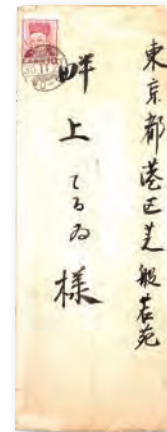 東京都港区芝般若苑
畔上てるゐ様